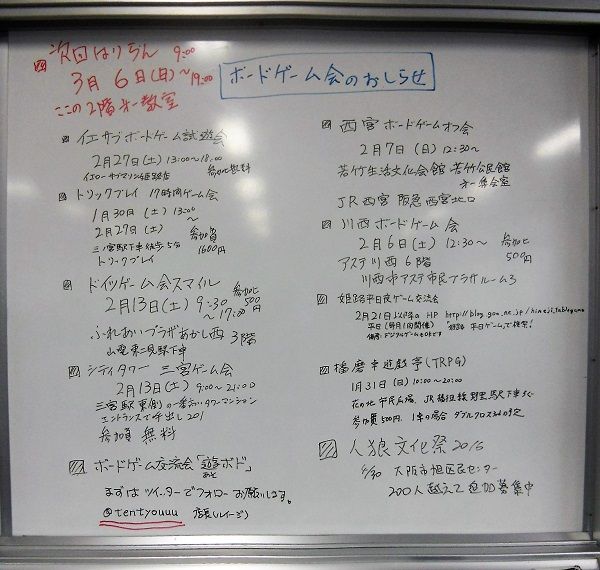 次回はりちん 9:00
3月6日(日)~19:00
ここの2階 オー教室
ボードゲーム会のおしらせ
イエサブボードゲーム試遊会
2月27日(土) 13:00~18:00
イエローサブマリン姫路店 参加化無料
トリックプレイ 17時間ゲーム会
1月30日(土) 13:00
~
2月27日(土) 参加費
三ノ宮駅下車 徒歩5分 1600円
トリックプレイ
ドイツゲーム会スマイル
2月13日(土) 9:30 参加ヒ 500円
~17:00
ふれあいプラザあかし西 3階
山電東二見駅下車
シティタワー 三宮ゲーム会
2月13日(土) 9:00~21:00
三宮駅東側の一番高いタワーマンション
エントランスで呼出し201
参加費 無料
ボードゲーム交流会「遊ボド」
まずはツイッターでフォローお願いします。
@tentyouuu
西宮ボードゲームオフ会
2月7日(日) 12:30~
若竹生活文化会館 若竹公民館
オ一集会室
JR西宮 阪急西宮北口
川西ボードゲーム会
2月6日(土) 12:30~ 参加ヒ
500円
アステ川西6階
川西市アステ市民プラザルーム3
姫路平日夜ゲーム交流会
2月21日以降 HP
平日(毎月1回開催) "姫路 平日ゲーム"で検索!
備考:デジタルゲームもOKです
播磨幸遊戯亭(TRPG)
1月31日(日) 10:00~20:00
花の北市民広場 JR播但線 野里駅下車
参加費500円
人狼文化祭2016
大阪市旭区民センター
200人越えて追加募集中